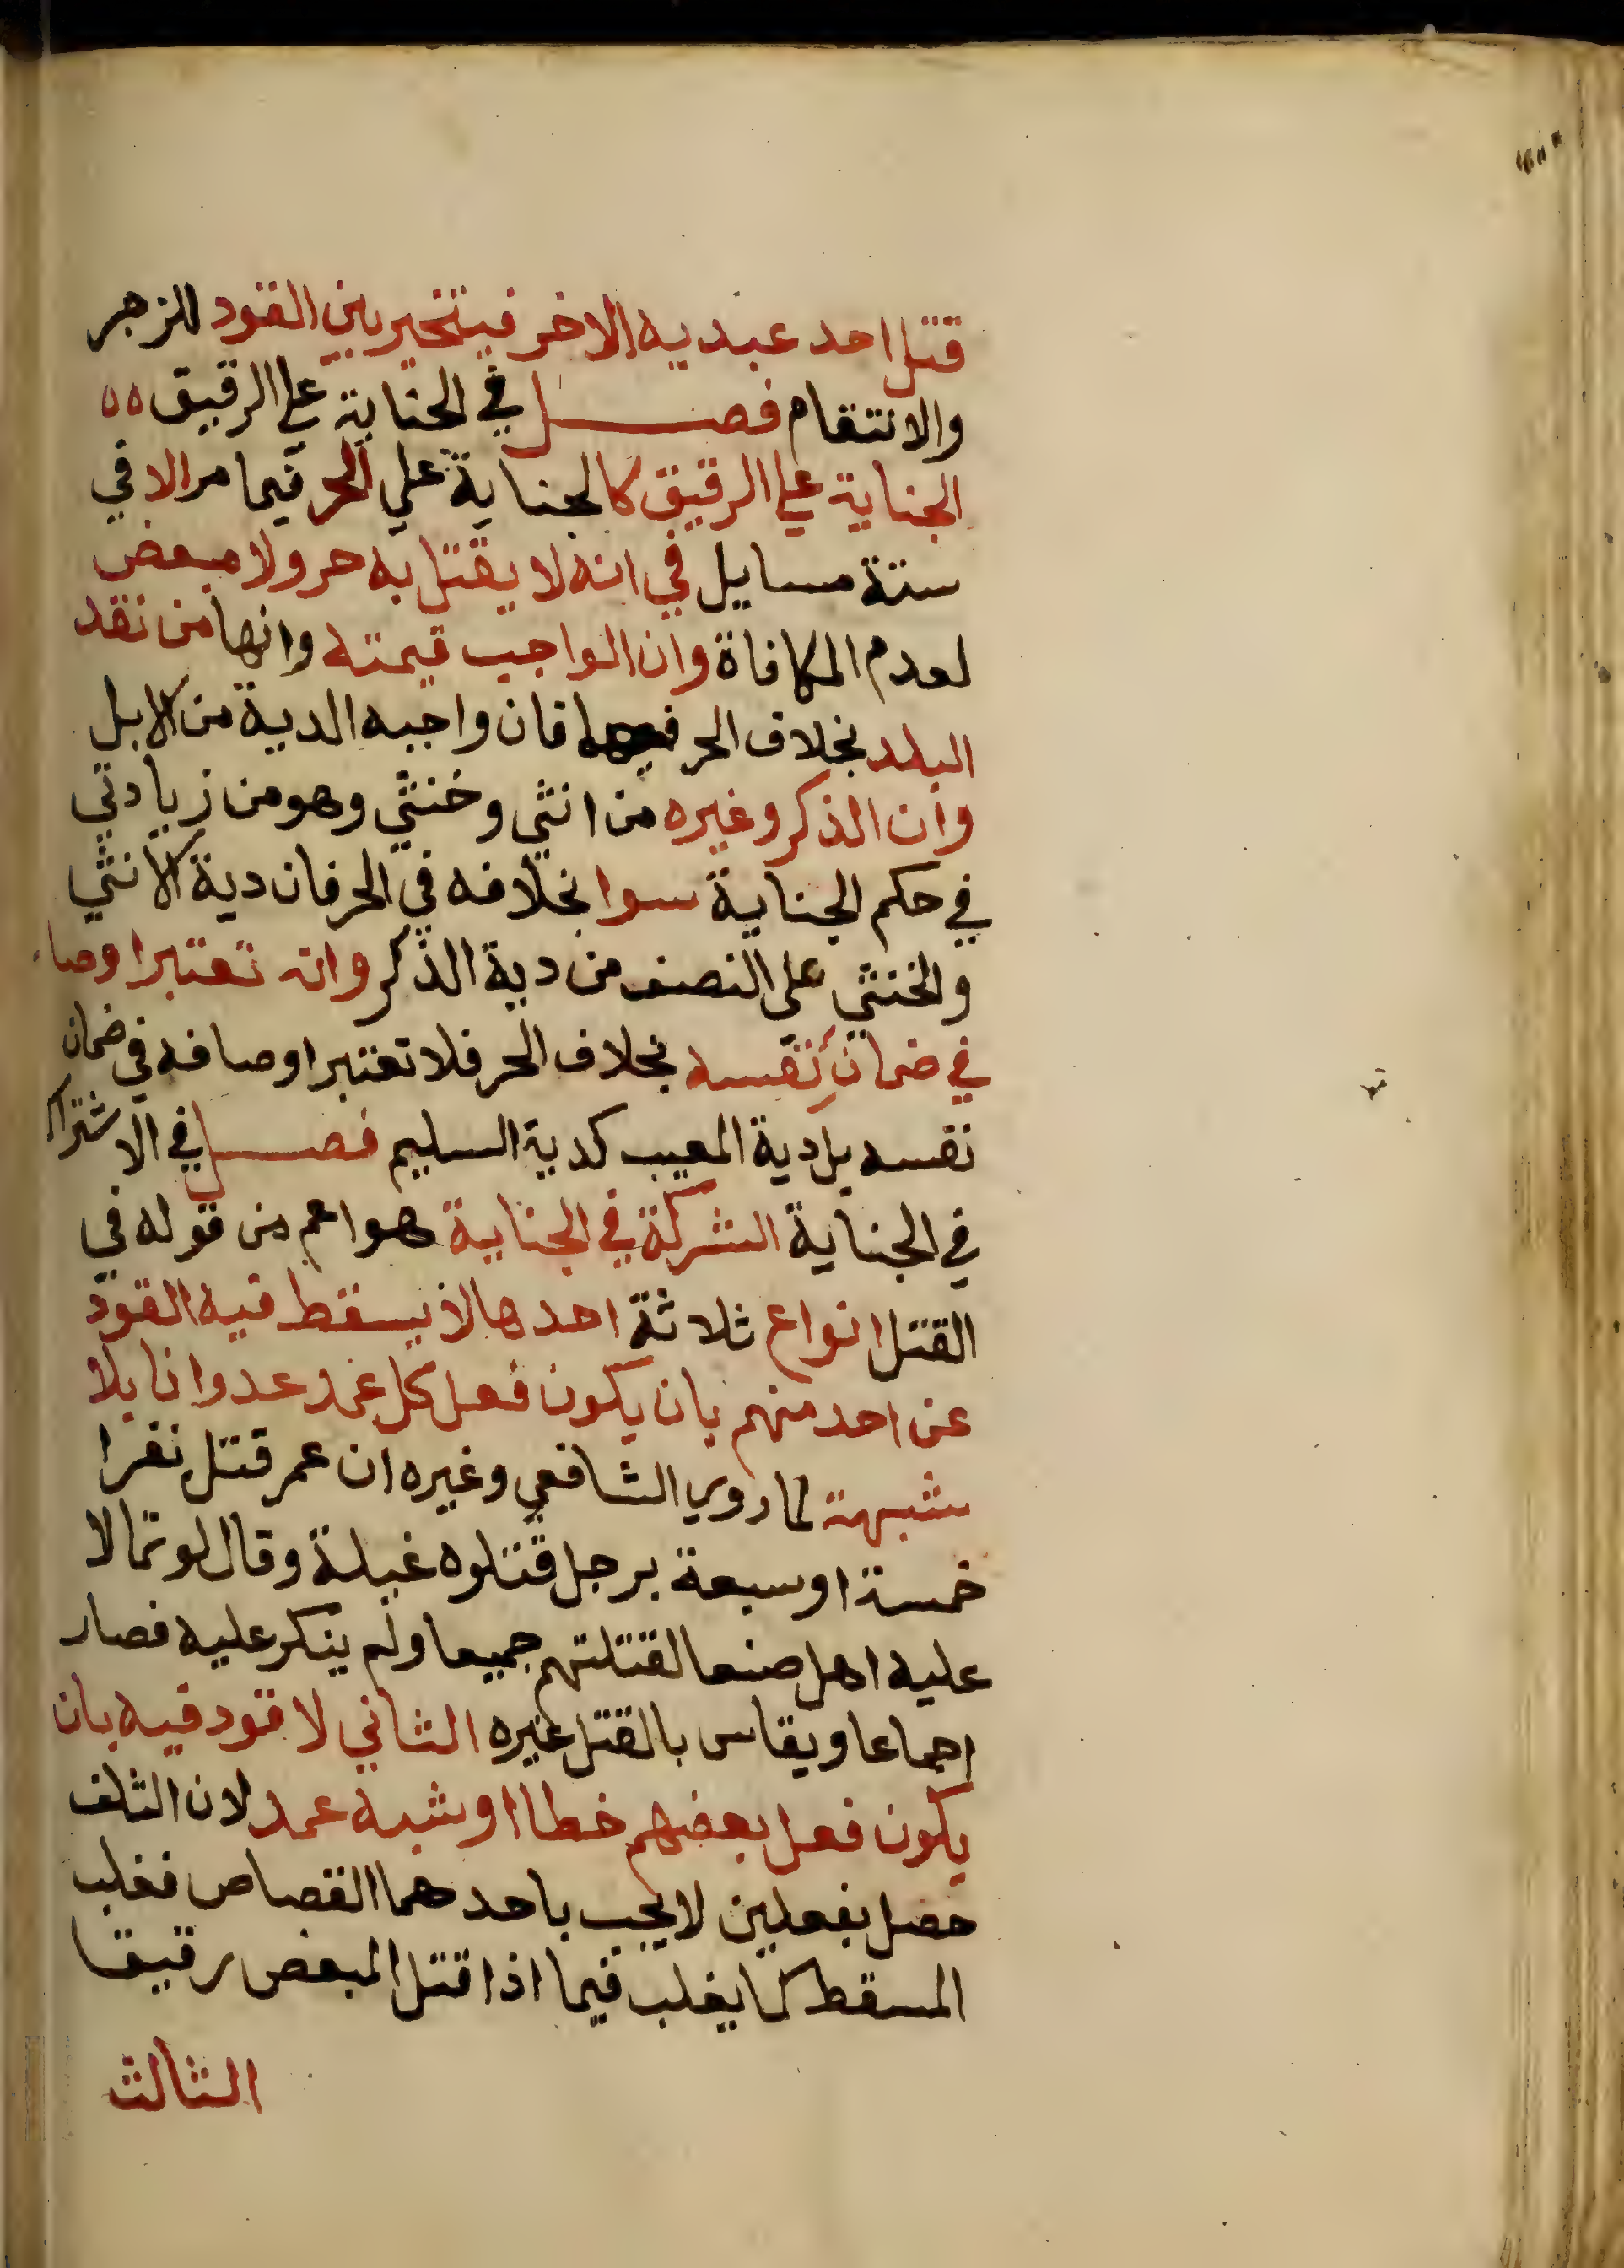 قتل احد عبديه الاخر فيتخير بين القود للزجر
والانتقام فصل في الجناية علي الرقيق ٥٥
الجناية علي الرقيق كالجناية علي الحر فيما مر الا في
ستة مسايل في انه لا يقتل به حر ولا مبعض
لعدم المكافاة وان الواجب قيمته وانها من نقد
البلد بخلاف الحر فيهما فان واجبه الدية من الابل
وان الذكر وغيره من انثي وخنثي وهو من زيادتي
في حكم الجناية سوا بخلافه في الحر فان دية الانثي
والخنثي علي النصف من دية الذكر وانه تعتبر اوصا
في ضمان نفسه بخلاف الحر فلا تعتبر اوصافه في ضمان
نفسه بل دية المعيب كدية السليم فصل في الاشتراك
في الجناية الشركة في الجناية هو اعم من قوله في
القتل انواع ثلاثة احدها لا يسقط فيه القود
عن احد منهم بان يكون فعل كل عمد عدوانا بلا
شبهة لما روي الشافعي وغيره ان عمر قتل نفرا
خمسة او سبعة برجل قتلوه غيلة وقال لو تمالا
عليه اهل صنعا لقتلتهم جميعا ولم ينكر عليه فصار
اجماعا ويقاس بالقتل غيره الثاني لا قود فيه بان
يكون فعل بعضهم خطا او شبه عمد لان التلف
حصل بفعلين لا يجب باحدهما القصاص فغلب
المسقط كما يغلب فيما اذا قتل المبعض رقيقا
الثالث